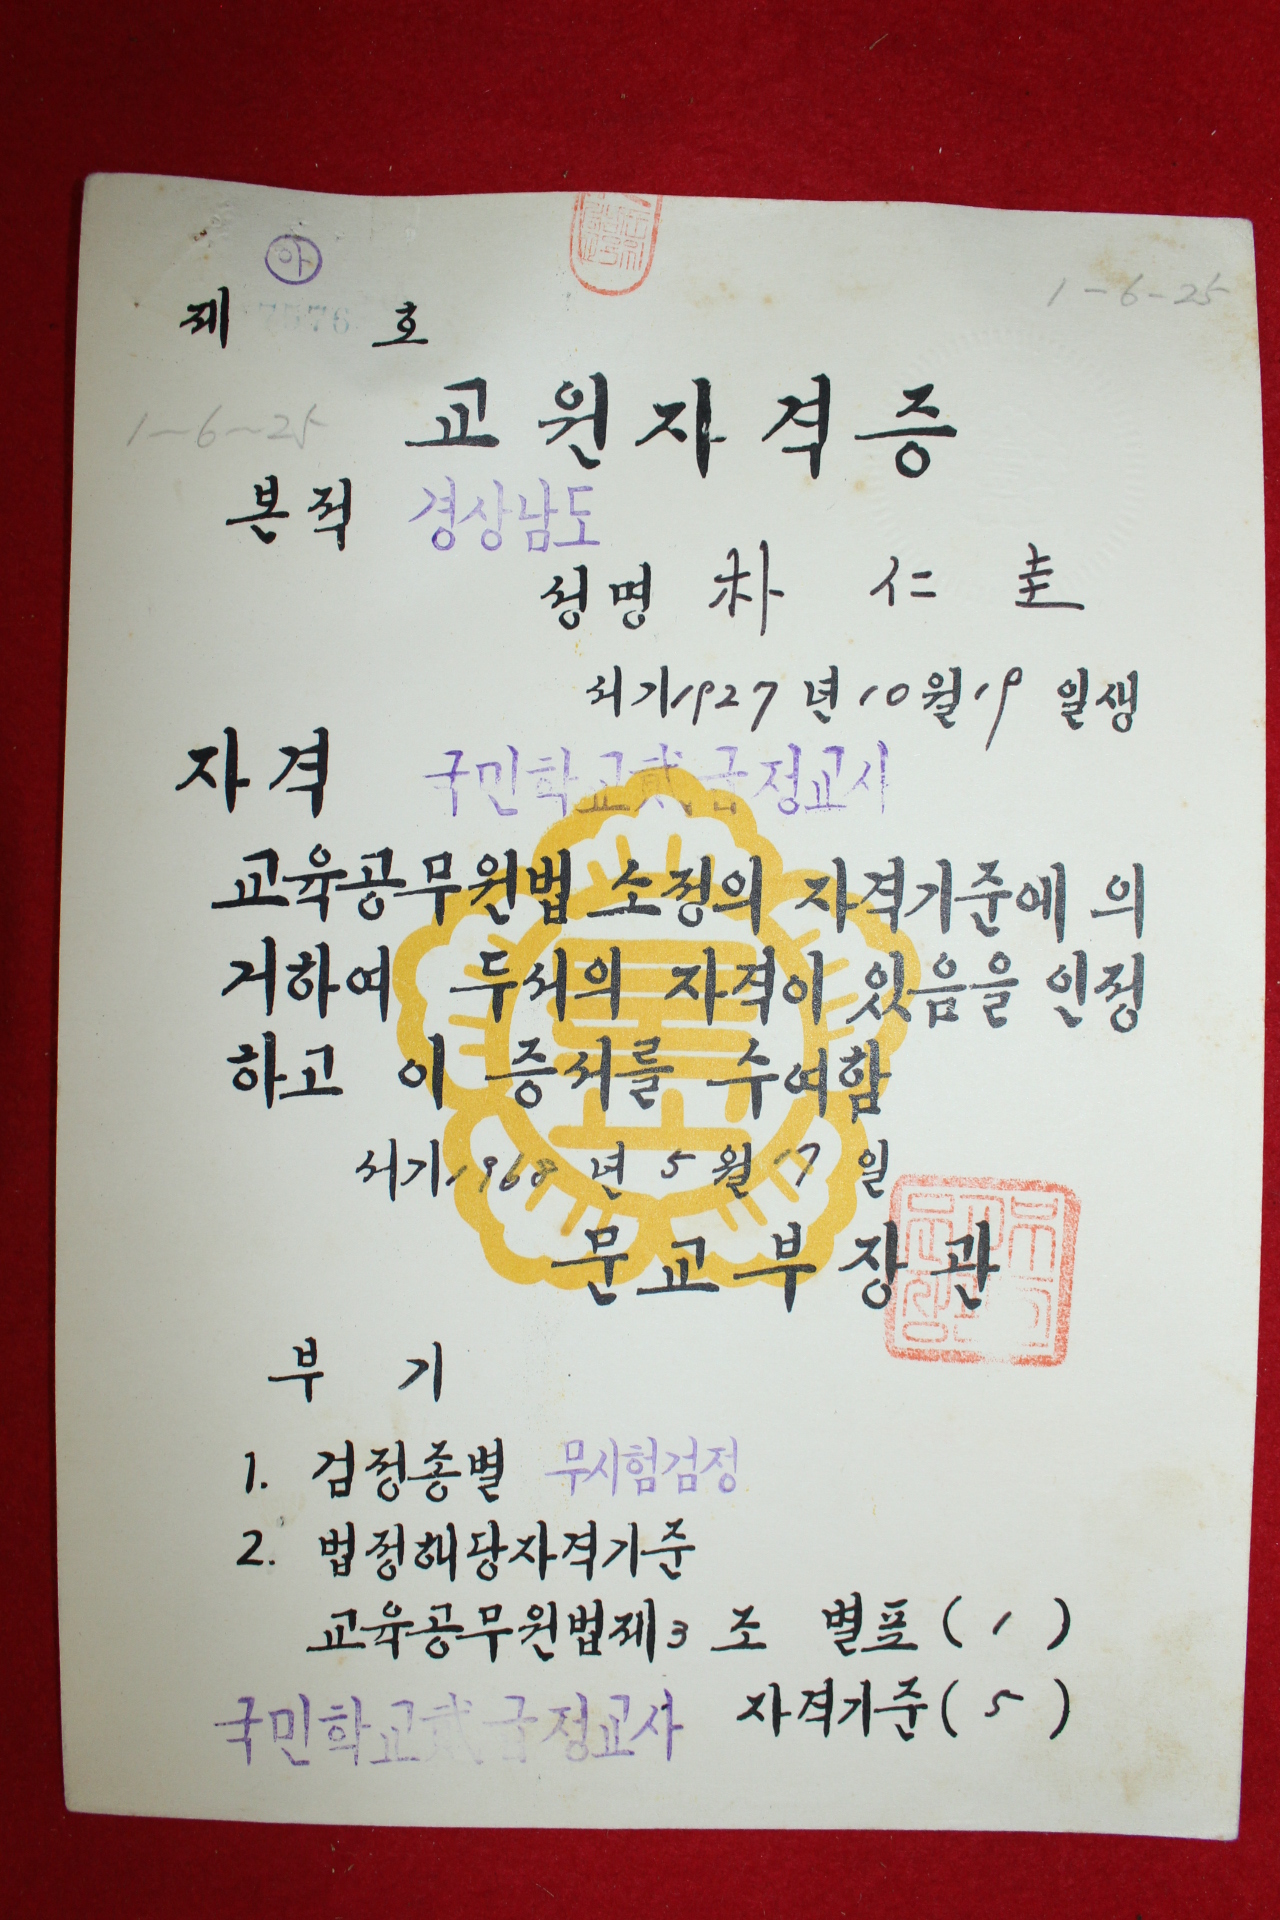 아
제 호
1-6-25
교원자격증
1-6-25
본적 경상남도
성명 朴仁圭
서기 1927년 10월 19일생
자격 국민학교貳급정교사
교육공무원법 소정의 자격기준에 의
거하여 두서의 자격이 있음을 인정
하고 이 증서를 수여함
서기 1968년 5월 17일
문교부장관
부기
1. 검정종별 무시험검정
2. 법정해당자격기준
교육공무원법제3조 별표(1)
국민학교貳급정교사 자격기준(5)